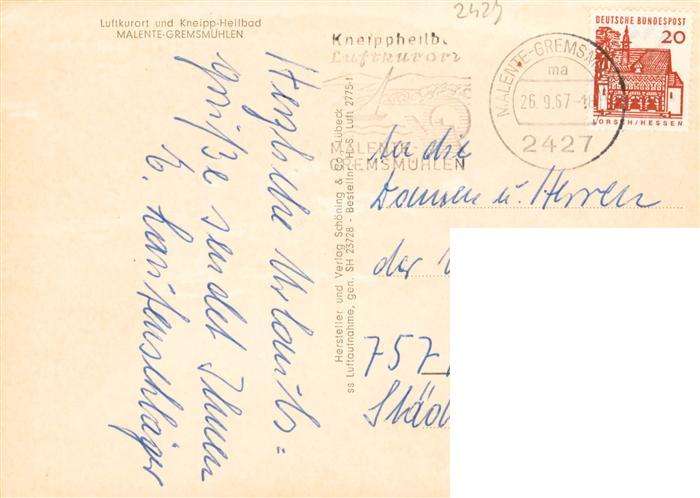 Luftkurort und Kneipp-Heilbad
MALENTE-GREMSMÜHLEN
Herzliche Urlaubs=
grüße sendet Ihnen
E. Lautenschläger
Hersteller und Verlag Schöning & Co., Lübeck
ss Luftaufnahme, gen. SH 23728 - Bestellnr. H. S. Luft 2775-1
2427
Kneippheilb
Luftkurort
MALENTE-
GREMSMÜHLEN
MALENTE-GREMSM
ma
26.9.67
2427
DEUTSCHE BUNDESPOST
20
LORSCH/HESSEN
An die
Damen u. Herren
der
757
Städ